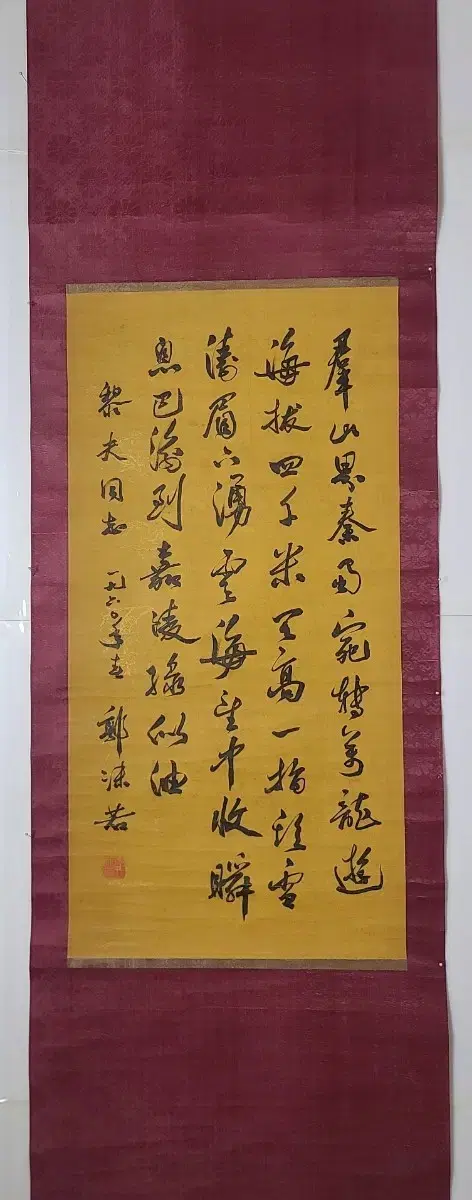 羣山界秦蜀宛轉萬龍遊
海拔四千米天高一指頭雪
濤眉下湧雲海望中收瞬
息巴渝到嘉陵綠似油
黎夫同志 一九六〇年春 郭沫若